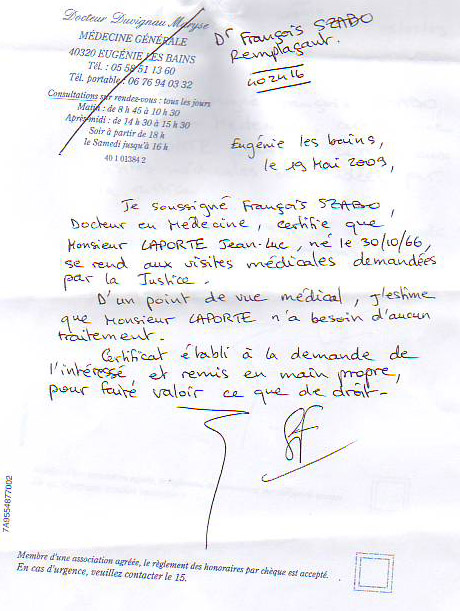 Docteur Duvignau Maryse
MÉDECINE GÉNÉRALE
40320 EUGÉNIE LES BAINS
Tél. : 05 58 51 13 60
Tél. portable : 06 76 94 03 32
Consultations sur rendez-vous : tous les jours
Matin : de 8 h 45 à 10 h 30
Après-midi : de 14 h 30 à 15 h 30
Soir à partir de 18 h
le Samedi jusqu'à 16 h
40 1 01384 2
Dr François SZABO
Remplaçant.
402416
Eugénie les bains,
le 19 Mai 2009,
Je soussigné François SZABO,
Docteur en Médecine, certifie que
Monsieur LAPORTE Jean-Luc, né le 30/10/66,
se rend aux visites médicales demandées
par la Justice.
D'un point de vue médical, j'estime
que Monsieur LAPORTE n'a besoin d'aucun
traitement.
Certificat établi à la demande de
l'intéressé et remis en main propre,
pour faire valoir ce que de droit.
7A9554877002
Membre d'une association agréée, le règlement des honoraires par chèque est accepté.
En cas d'urgence, veuillez contacter le 15.